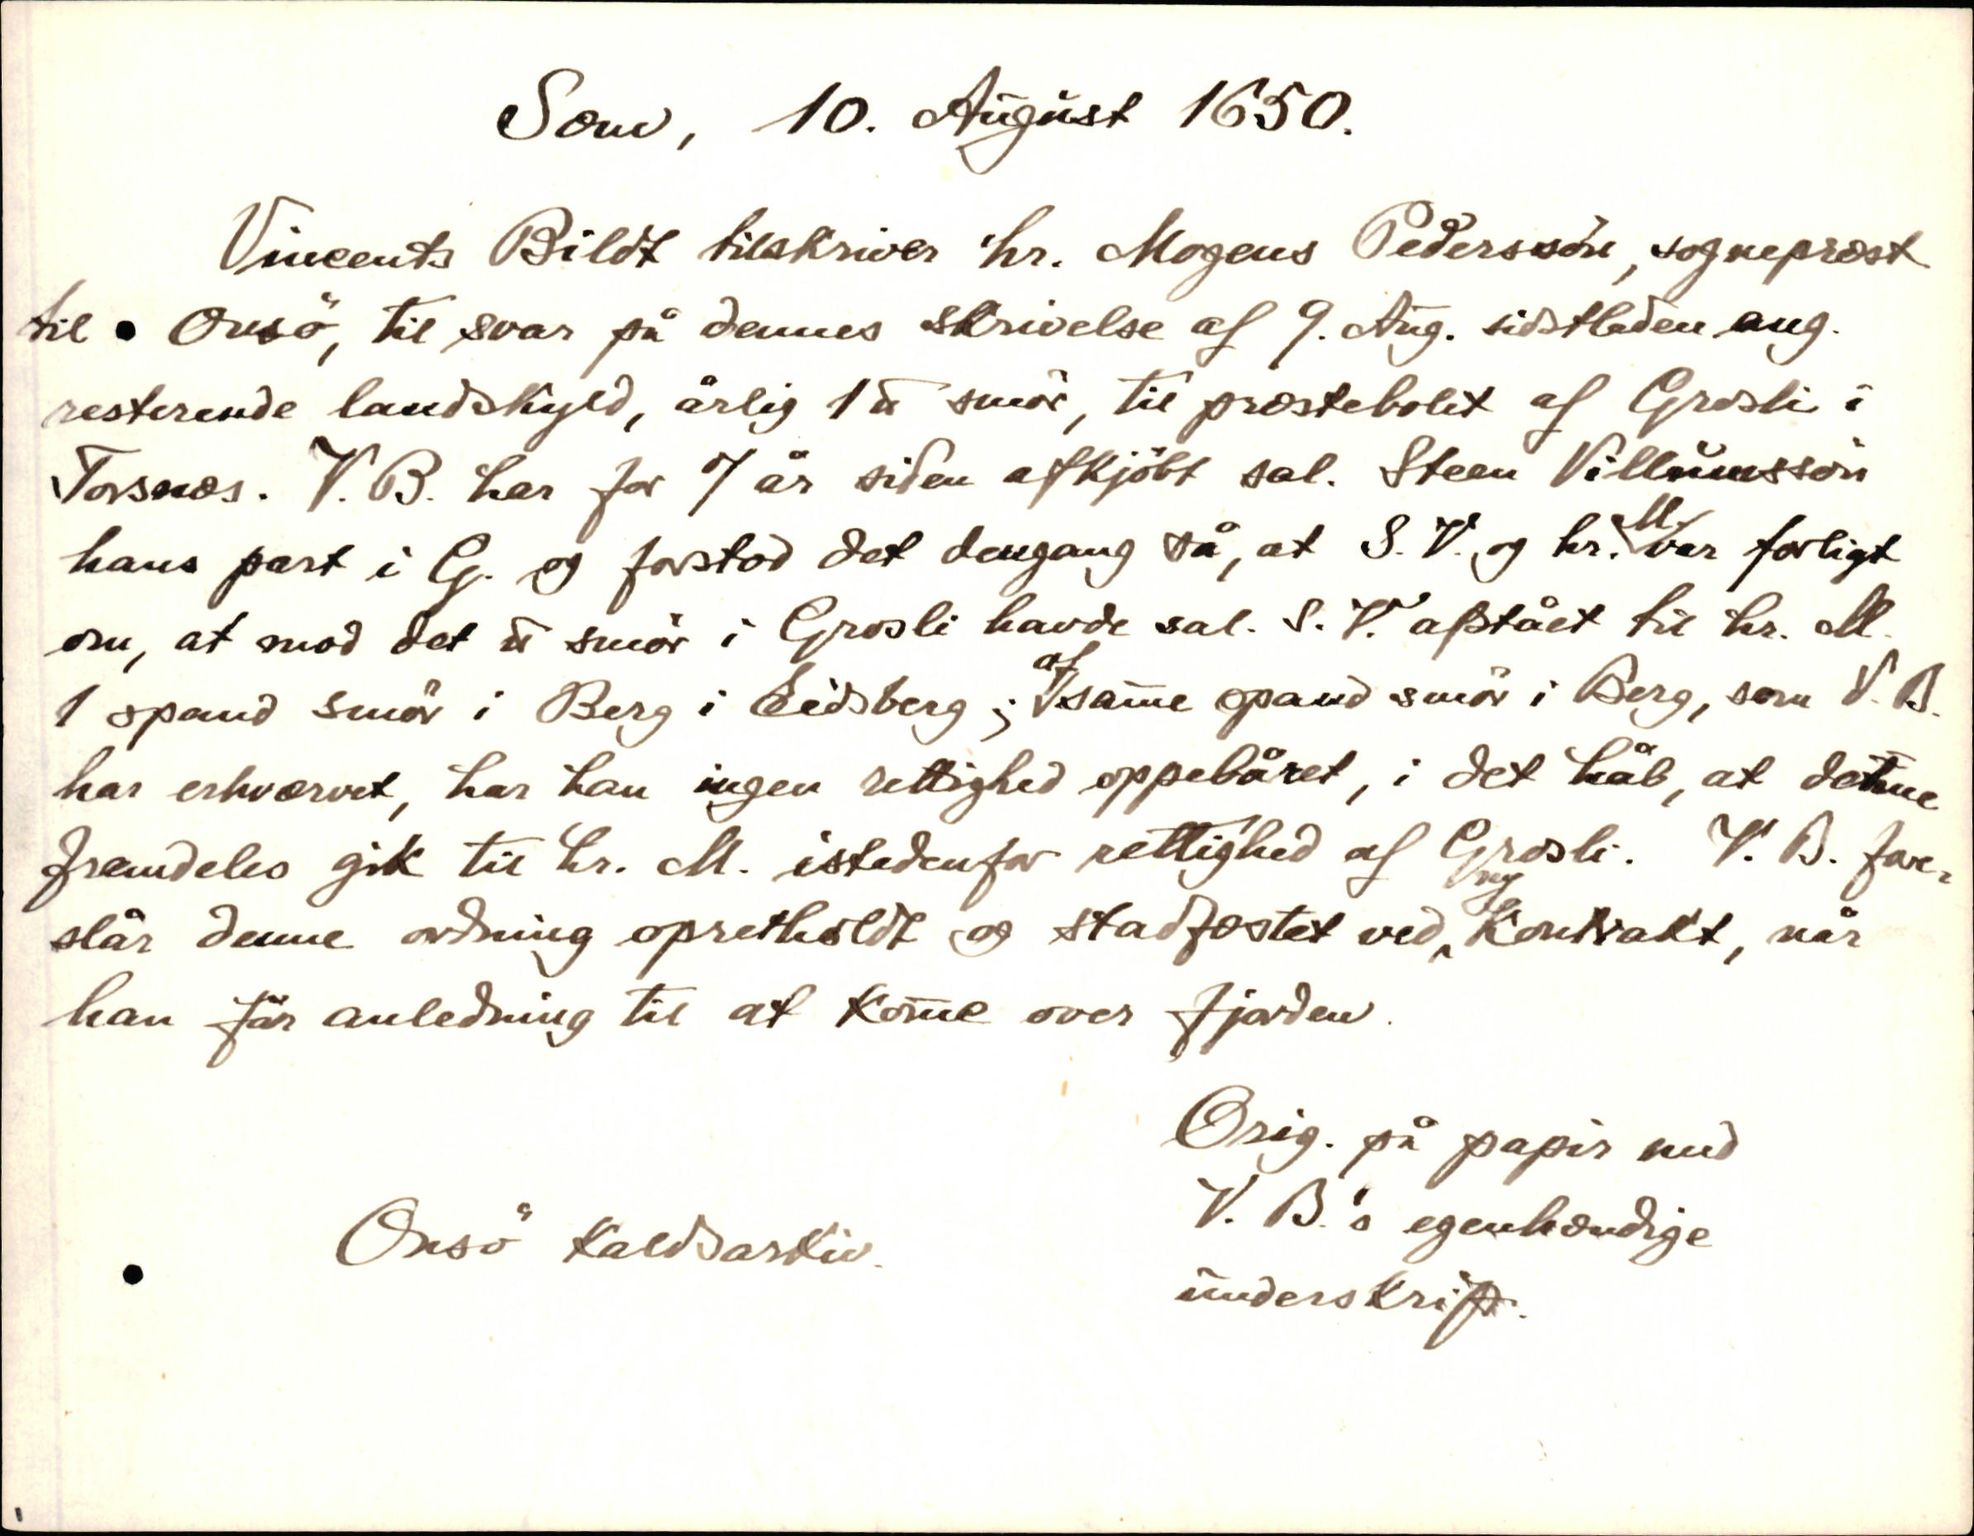 Som, 10. August 1650.
Vincents Bildt tilskriver hr. Mogens Pederssön, sogneprest
til Onsö, til svar på dennes skrivelse af 9. Aug. sidstleden ang.
resterende landskyld, årlig 1 ℔ smör, til præstebolet af Grosli i
Torsnæs. V. B. har for 7 år siden afkjöbt sal. Steen Villumssön
hans part i G. og forstod det dengang så, at S. V. og hr. M. var forligt
om, at mod det ℔ smör i Grosli havde sal. S. V. afstået til hr. M.
1 spand smör i Berg i Eidsberg; af sam̄e spand smör i Berg, som V. B.
har erhværvet, har han ingen rettighed oppebåret, i det håb, at denne
fremdeles gik til hr. M. istedenfor rettighed af Grosli. V. B. fore-
slår denne ordning opretholdt og stadfæstet ved ny kontrakt, når
han får anledning til at kom̄e over fjorden.
Orig. på papir med
V. B.'s egenhændige
underskrift.
Onsö kaldsarkiv.